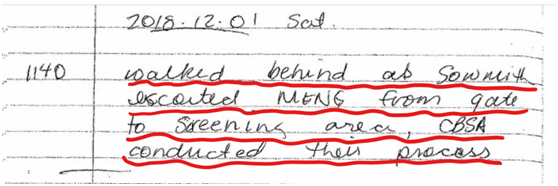 2018.12.01 Sat.
1140 walked behind as Sowmith
escorted MENG from gate
to screening area, CBSA
conducted their process